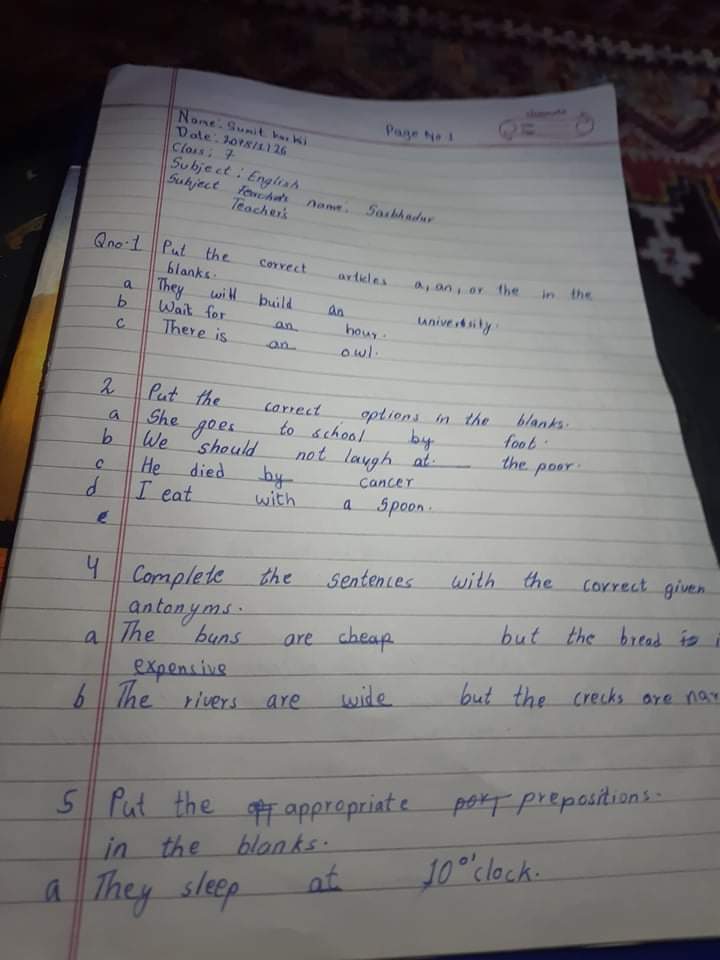 Name: Sumit Karki
Page No 1
Date: 2078/2/26
Class: 7
Subject: English
Subject Teachers name. Sarbhadur
Teacher's
Qno.1 Put the correct articles a, an, or the in the
blanks.
a They will build an university.
b Wait for an hour.
c There is an owl.
2 Put the correct options in the blanks.
a She goes to school by foot.
b We should not laugh at the poor.
c He died by cancer
d I eat with a spoon.
e
4 Complete the sentences with the correct given
antonyms.
a The buns are cheap but the bread is
expensive
b The rivers are wide but the crecks are nar
5 Put the appropriate prepositions.
in the blanks.
a They sleep at 10 o'clock.